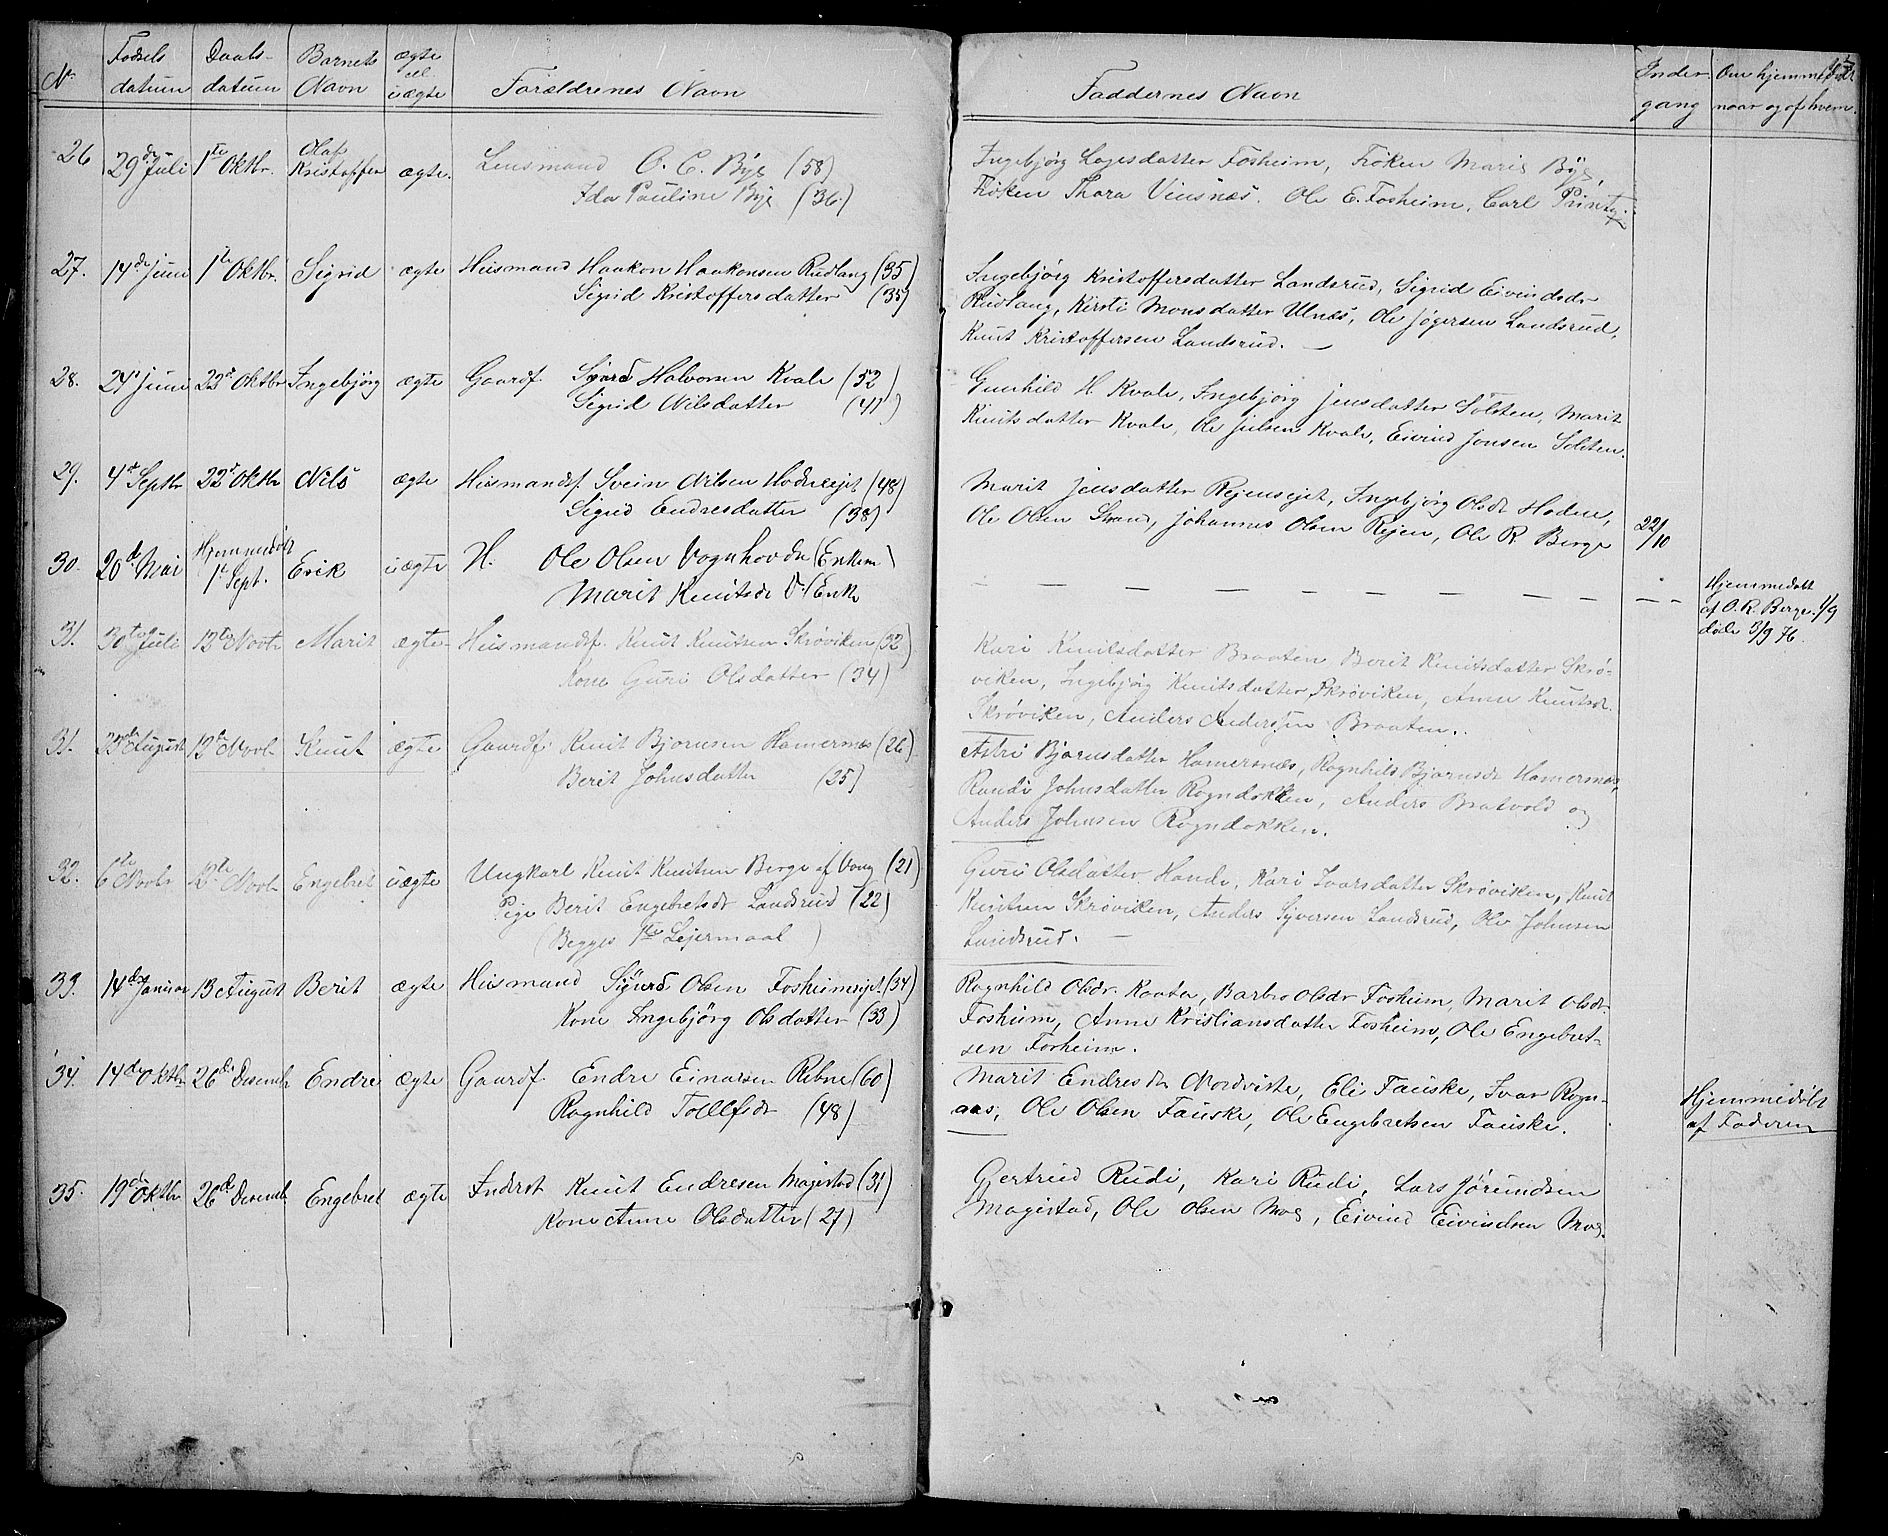 No Fødsels datum Daabs- datum Barnets Navn ægte ell. uægte Forældrenes Navn Faddernes Navn Inder gang Om hjemmedøbt naar og af hvem.
26 29de Juli 1ste Oktbr. Olaf Kristoffer ægte. Lensmand O. C. Bye (58)
Ida Pauline Bye (36)
Ingebjørg Lagesdatter Fosheim, Frøken Marie Bye,
Frøken Thora Viusnæs. Ole E. Fosheim, Carl Printz.
27. 14de Juni 1ste Oktbr. Sigrid ægte Husmand Haakon Haakonsen Rudlang (35)
Sigrid Kristoffersdatter (35)
Ingebjørg Kristoffersdatter Landsrud, Sigrid Eivindsdr
Rudlang, Kirsti Monsdatter Ulnæs, Ole Jøgersen Landsrud,
Knut Kristoffersen Landsrud. —
28. 24de Juni 22de Oktbr Ingebjørg ægte Gaardf. Sjurd Halvorsen Kvale (52)
Sigrid Nilsdatter (41)
Gunhild H. Kvale, Ingebjørg Jensdatter Solsten, Marit
Knutsdatter Kvale, Ole Julsen Kvale, Eivind Jonsen Solsten.
29. 4de Septbr 22de Oktbr Nils ægte Husmandsf. Svein Nilsen Hodneejet (48)
Sigrid Endresdatter (38)
Marit Jensdatter Rejensejet, Ingebjørg Olsdr Hodne,
Ole Olsen Strand, Johannes Olsen Rejen, Ole R. Berge 22/10
30. 20de Mai Hjemmedøbt 1ste Sept. Erik uægte H. Ole Olsen Vognhovda (Enkem)
Marit Knutsdr V. (Enke
— — — — — — — — — —
Hjemmedøbt
af O. R. Berge 1/9
døde 3/9 76.
31. 30te Juli 12te Novbr Marit ægte Husmandsf. Knut Knutsen Skrøviken (32)
Kone Guri Olsdatter (34)
Kari Knutsdatter Braaten, Berit Knutsdatter Skrø-
viken, Ingebjørg Knutsdatter Skrøviken, Anne Knutsdr.
Skrøviken, Anders Andersen Braaten.
31. 23de August 12te Novbr Knut ægte Gaardf. Knut Bjørnsen Hamersnæs (26)
Berit Johnsdatter (25)
Astri Bjørnsdatter Hamersnæs, Ragnhild Bjørnsdr Hamersnæs,
Randi Johnsdatter Rogndokken, Anders Bratvold og
Anders Johnsen Rogndokken.
32. 6te Novbr 12te Novbr Engebret uægte Ungkarl Knut Knutsen Berge af Vang (21)
Pige Berit Engebretsdr Landsrud (22)
(Begges 1ste Lejermaal)
Guri Olsdatter Hande, Kari Ivarsdatter Skrøviken, Knut
Knutsen Skrøviken, Anders Syversen Landsrud, Ole Johnsen
Landsrud. —
33. 14de Januar 13 August Berit ægte Husmand Sjurd Olsen Fosheimsejet (34)
Kone Ingebjørg Olsdatter (33)
Ragnhild Olsdr. Kaata, Barbro Olsdr Fosheim, Marit Olsdr
Fosheim, Anne Kristiansdatter Fosheim, Ole Engebret-
sen Fosheim.
34. 14de Oktbr 26de Desembr Endre ægte Gaardf. Endre Einarsen Ribne (60)
Ragnhild Tollefsdr (48)
Marit Endresdr Nordviste, Eli Fauske, Ivar Rogn-
aas, Ole Olsen Fauske, Ole Engebretsen Fauske.
Hjemmedøbt
af Faderen
35. 19de Oktbr 26de Desembr Engebret ægte Inderst Knut Endresen Magistad (31)
Kone Anne Olsdatter (27)
Gjertrud Rudi, Kari Rudi, Lars Jørundsen
Magistad, Ole Olsen Moe, Eivind Eivindsen Moe.